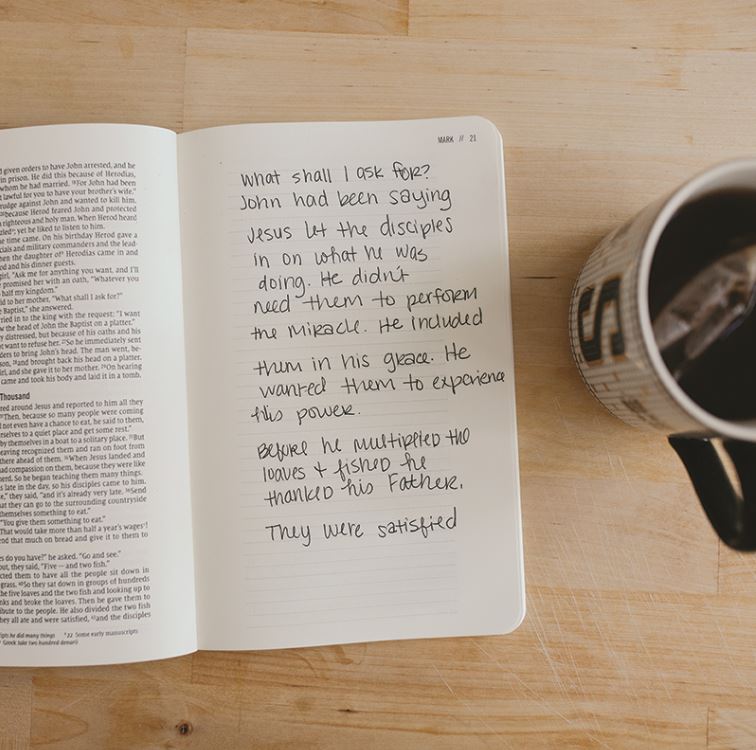 given orders to have John arrested, and he
in prison. He did this because of Herodias,
whom he had married. ¹⁸For John had been
lawful for you to have your brother's wife."
rudge against John and wanted to kill him.
²⁰because Herod feared John and protected
righteous and holy man. When Herod heard
zled; yet he liked to listen to him.
e time came. On his birthday Herod gave a
cials and military commanders and the lead-
hen the daughter of Herodias came in and
d and his dinner guests.
girl, "Ask me for anything you want, and I'll
promised her with an oath, "Whatever you
half my kingdom."
id to her mother, "What shall I ask for?"
Baptist," she answered.
ried in to the king with the request: "I want
w the head of John the Baptist on a platter."
y distressed, but because of his oaths and his
t want to refuse her. ²⁷So he immediately sent
ders to bring John's head. The man went, be-
son, ²⁸and brought back his head on a platter.
irl, and she gave it to her mother. ²⁹On hearing
came and took his body and laid it in a tomb.
Thousand
red around Jesus and reported to him all they
³¹Then, because so many people were coming
d not even have a chance to eat, he said to them,
rselves to a quiet place and get some rest."
by themselves in a boat to a solitary place. ³³But
eaving recognized them and ran on foot from
there ahead of them. ³⁴When Jesus landed and
ad compassion on them, because they were like
herd. So he began teaching them many things.
s late in the day, so his disciples came to him.
e," they said, "and it's already very late. ³⁶Send
at they can go to the surrounding countryside
themselves something to eat."
"You give them something to eat."
That would take more than half a year's wages!
end that much on bread and give it to them to
es do you have?" he asked. "Go and see."
out, they said, "Five — and two fish."
cted them to have all the people sit down in
grass. ⁴⁰So they sat down in groups of hundreds
the five loaves and the two fish and looking up to
nks and broke the loaves. Then he gave them to
ibute to the people. He also divided the two fish
hey all ate and were satisfied, ⁴³and the disciples
ripts he did many things 22 Some early manuscripts
Greek take two hundred denarii
MARK // 21
what shall I ask for?
John had been saying
Jesus let the disciples
in on what he was
doing. He didn't
need them to perform
the miracle. He included
them in his grace. He
wanted them to experience
this power.
Before he multiplied the
loaves + fished he
thanked his Father.
They were satisfied
S